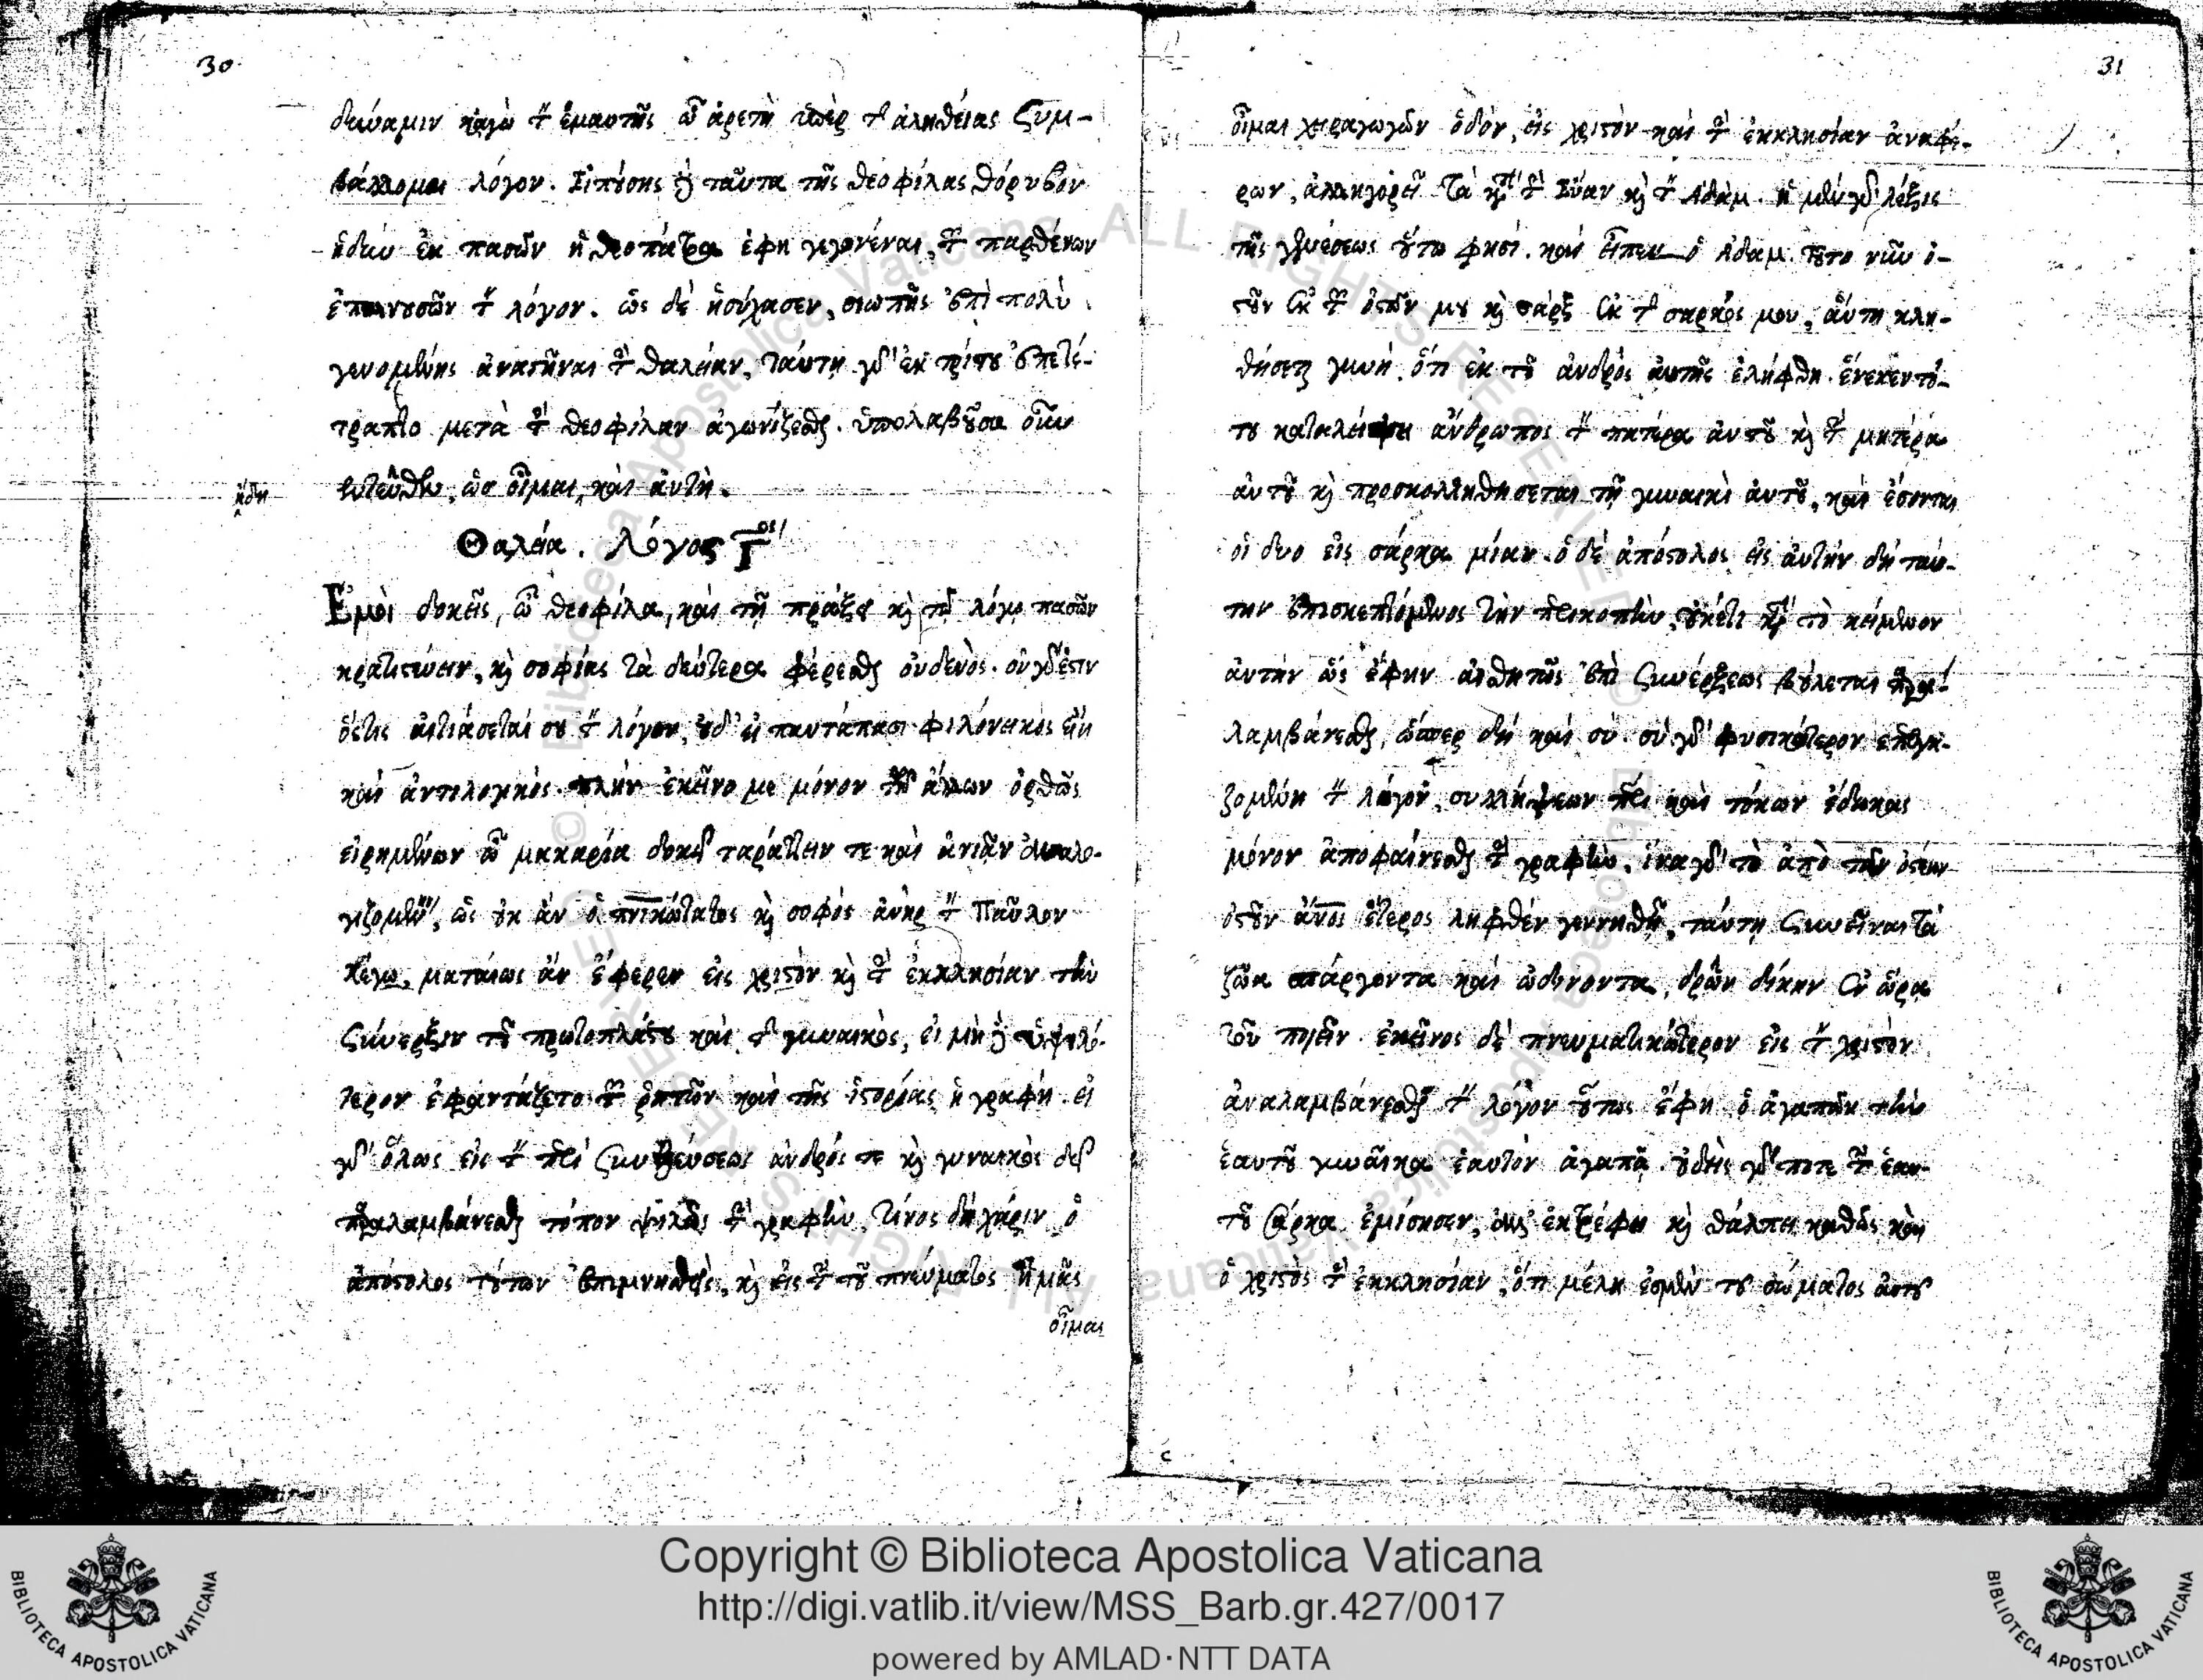 30
δύναμιν κἀγὼ τὸν ἐμαυτῆς ὦ ἀρετὴ ὑπὲρ τῆς ἀληθείας ξυμ-
βάλλομαι λόγον. Εἰπούσης δὲ ταῦτα τῆς θεοφίλας θόρυβον
ἡδὺν ἐκ πασῶν ἡ θεοπάτρα ἔφη γεγονέναι, τῶν παρθένων
ἐπαινουσῶν τὸν λόγον. ὡς δὲ ἡσύχασεν, σιωπῆς ἐπὶ πολὺ
γενομένης ἀναστῆναι τὴν θαλείαν, ταύτῃ γὰρ ἐκ τρίτου ἐπετέ-
τραπτο μετὰ τὴν θεοφίλαν ἀγωνίζεσθαι. ὑπολαβοῦσα οὖν
ἤδη
ἐντεῦθεν, ὡς οἶμαι, καὶ αὐτὴ.
Θαλεία. Λόγος Γος
Ἐμοὶ δοκεῖς, ὦ θεοφίλα, καὶ τῇ πράξει καὶ τῷ λόγῳ πασῶν
κρατιστεύειν, καὶ σοφίας τὰ δεύτερα φέρεσθαι οὐδενὸς. οὐ γὰρ ἔστιν
ὅστις αἰτιάσεταί σου τὸν λόγον, οὐδ' εἰ παντάπασι φιλόνεικος εἴη
καὶ ἀντιλογικός. πλὴν ἐκεῖνο με μόνον τῶν ἄλλων ὀρθῶς
εἰρημένων ὦ μακαρία δοκεῖ ταράττειν τε καὶ ἀνιᾶν ἀναλο-
γιζομένην, ὡς οὐκ ἂν ὁ πνικώτατος καὶ σοφὸς ἀνὴρ τὸν Παῦλον
λέγω, ματαίως ἂν ἔφερεν εἰς χριστὸν καὶ τὴν ἐκκλησίαν τὴν
ξύνερξιν τοῦ πρωτοπλάστου καὶ τῆς γυναικὸς, εἰ μηδὲν ὑψηλό-
τερον ἐφαντάζετο τῶν ῥητῶν καὶ τῆς ἱστορίας ἡ γραφή. εἰ
γὰρ ὅλως εἰς τὸν περὶ ξυνελεύσεως ἀνδρός τε καὶ γυναικὸς δεῖ
παραλαμβάνεσθαι τόπον ψιλῶς τὴν γραφὴν, τίνος δὴ χάριν ὁ
ἀπόστολος τούτων ἐπιμνησθεὶς, καὶ εἰς τὴν τοῦ πνεύματος ἡμᾶς
οἶμαι
31
οἶμαι χειραγωγῶν ὁδὸν, εἰς χριστὸν καὶ τὴν ἐκκλησίαν ἀναφέ-
ρων, ἀλληγορεῖ τὰ κατὰ τὴν Εὔαν καὶ τὸν Ἀδὰμ. ἡ μὲν γὰρ λέξις
τῆς γενέσεως οὕτω φησί. καὶ εἶπεν ὁ Ἀδαμ. τοῦτο νῦν ὀ-
στοῦν ἐκ τῶν ὀστῶν μου καὶ σάρξ ἐκ τῆς σαρκός μου, αὕτη κλη-
θήσεται γυνή. ὅτι ἐκ τοῦ ἀνδρός αὐτῆς ἐλήφθη. ἕνεκεν τού-
του καταλείψει ἄνθρωπος τὸν πατέρα αὐτοῦ καὶ τὴν μητέρα
αὐτοῦ καὶ προσκολληθήσεται τῇ γυναικὶ αὐτοῦ, καὶ ἔσονται
οἱ δυο εἰς σάρκα μίαν. ὁ δὲ ἀπόστολος εἰς αὐτήν δὴ ταύ-
την ἐπισκεπτόμενος τὴν περικοπὴν, οὐκέτι κατὰ τὸ κείμενον
αὐτὴν ὥς ἔφην αἰσθητῶς ἐπὶ ξυνέρξεως βούλεται παρα-
λαμβάνεσθαι, ὥσπερ δὴ καὶ σύ. σὺ γὰρ φυσικώτερον ἐπιλογι-
ζομένη τὸν λόγον, συλλήψεων περὶ καὶ τόκων ἔδωκας
μόνον ἀποφαίνεσθαι τὴν γραφὴν, ἵνα γὰρ τὸ ἀπὸ τῶν ὀστέων
ὀστοῦν ἄνος ἕτερος ληφθὲν γεννηθῇ, ταύτῃ ξυνεῖναι τὰ
ζῶα σπάργοντα καὶ ὠδίνοντα, δρῶν δίκην ἐν ὥρᾳ
τοῦ ποιεῖν. ἐκεῖνος δὲ πνευματικώτερον εἰς τὸν χριστὸν
ἀναλαμβάνεσθαι τὸν λόγον οὕτως ἔφη. ὁ ἀγαπῶν τὴν
ἑαυτοῦ γυναῖκα ἑαυτὸν ἀγαπᾷ. οὐδεὶς γάρ ποτε τὴν ἑαυ-
τοῦ σάρκα ἐμίσησεν, ἀλλ' ἐκτρέφει καὶ θάλπει καθὼς καὶ
ὁ χριστὸς τὴν ἐκκλησίαν, ὅτι μέλη ἐσμὲν τοῦ σώματος αὐτοῦ
c
Copyright © Biblioteca Apostolica Vaticana
http://digi.vatlib.it/view/MSS_Barb.gr.427/0017
powered by AMLAD·NTT DATA
BIBLIOTECA APOSTOLICA VATICANA
BIBLIOTECA APOSTOLICA VATICANA